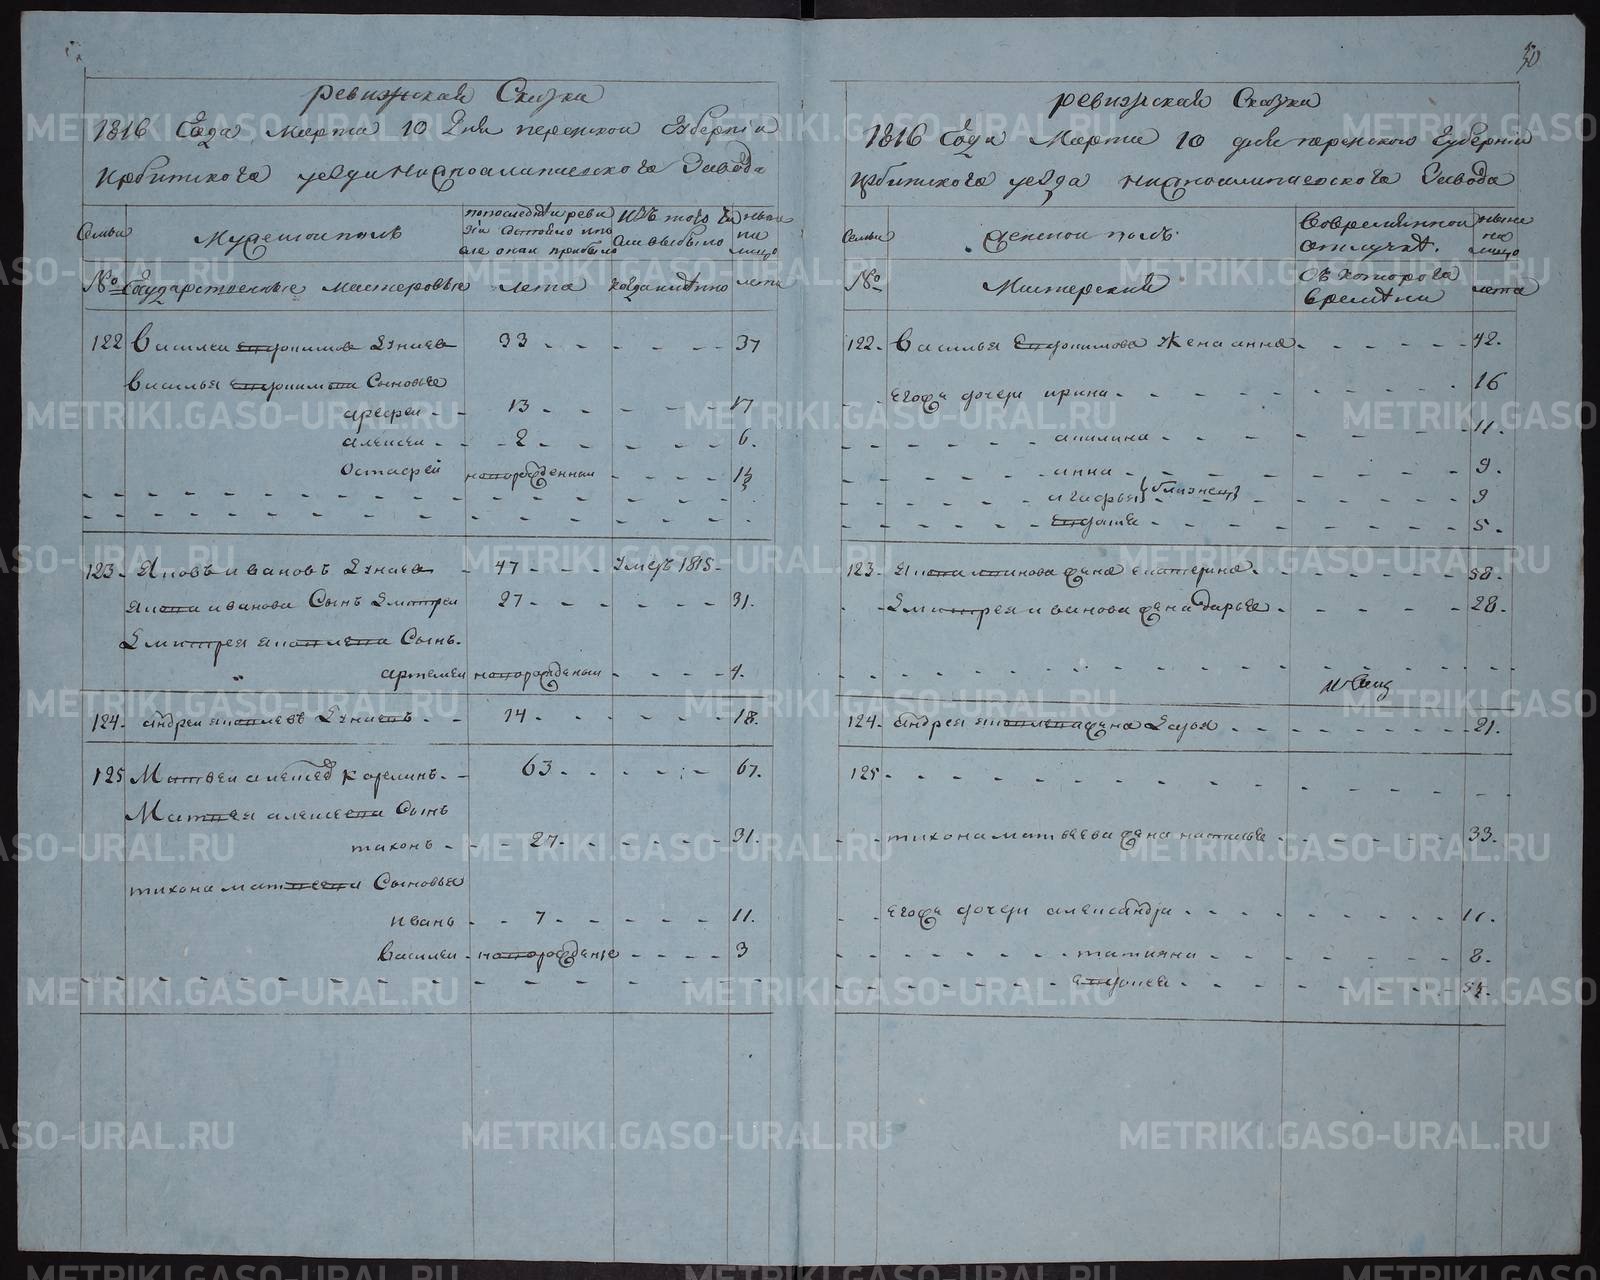 50
ревижская Сказка
1816 Года Марта 10 Дня пермской Губернiи
Ирбитского уезда Нижноалапаевского Завода
Семьи
Мужеской полъ
по последней реви
зiи состояло или
после онаи прибыло
Изъ того Числа выбыло
ныне на лицо
№
Государственные мастеровые
лета
когда имянно
лета
122 Василеи Ефимова 33 - - - - - 37
Василья Сыновье
арефеи - - 13 - - - - - 17
алексеи - - 2 - - - - - 6.
Остафей новорожденныи - - - - 1½
123 - Яковъ ивановъ - 47 - - - Умеръ 1815 -
Якова иванова Сынъ Дмитреи 27 - - - - - 31.
Дмитрея Яковлева Сынъ.
артемеи новорожденыи - - - - 4.
124 - андреи яковлевъ - - 14 - - - - - 18.
125 Матвеи алексеевъ Карелинъ - - 63 - - - - - 67.
Матвея алексеева Сынъ
тихонъ - - - 27 - - - - - 31.
тихона матвеева Сыновья
иванъ - - 7 - - - - - 11.
Василеи - новорожденые - - - - 3
ревижская Сказка
1816 Года Марта 10 дня пермского Губернiи
Ирбитского уезда нижноалапаевского Завода
Семьи
Женской полъ
Вовременной
отлучке.
ныне
на
лицо
№
Мастерский
Съ которого
времени
лета
122 - Василья жена анна - - - - - 42.
Его же дочери ирина - - - - - 16
акилина - - - - - 11.
анна - - - - - 9.
агафья близнецы - - - - - 9
- - - - - 5.
123 - Якова иванова жена екатерина - - - - - 58.
Дмитрея иванова жена дарья - - - - - 28.
124 - андрея яковлева жена - - - - - 21.
125 - - - - -
тихона матвеева жена наталья - - - - - 33.
Его же дочери александра - - - - - 11.
татияна - - - - - 8.
METRIKI.GASO-URAL.RU